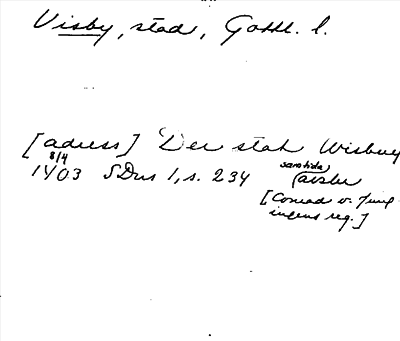 Visby, stad, Gottl. l.
[adress] Der stat Wisbuy
8/4 samtida
1403 SDns 1, s. 234 avskr
[Conrad v. Jung-
ingens reg.]